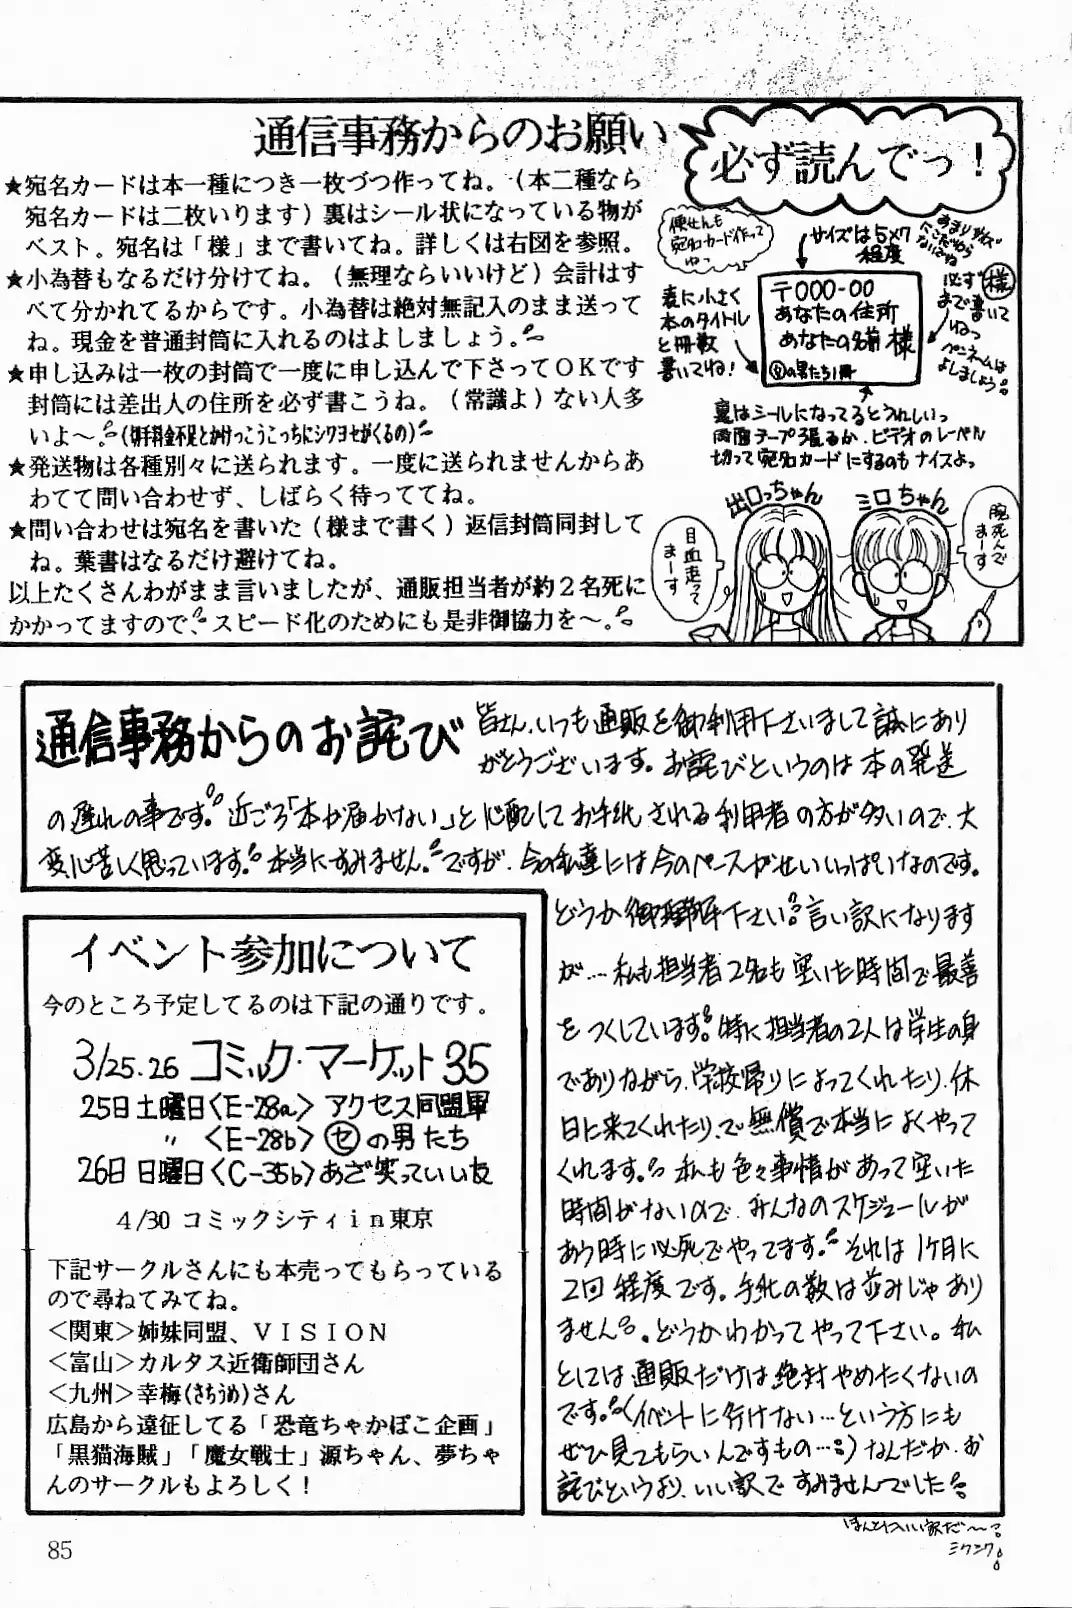 通信事務からのお願い
必ず読んでっ！
★宛名カードは本一種につき一枚づつ作ってね。（本二種なら
宛名カードは二枚いります）裏はシール状になっている物が
ベスト。宛名は「様」まで書いてね。詳しくは右図を参照。
★小為替もなるだけ分けてね。（無理ならいいけど）会計はす
べて分かれてるからです。小為替は絶対無記入のまま送って
ね。現金を普通封筒に入れるのはよしましょう。
★申し込みは一枚の封筒で一度に申し込んで下さってＯＫです
封筒には差出人の住所を必ず書こうね。（常識よ）ない人多
いよ～。（切手料金不足とかけっこうこっちにシワヨセがくるの）
★発送物は各種別々に送られます。一度に送られませんからあ
わてて問い合わせず、しばらく待っててね。
★問い合わせは宛名を書いた（様まで書く）返信封筒同封して
ね。葉書はなるだけ避けてね。
以上たくさんわがまま言いましたが、通販担当者が約２名死に
かかってますので、スピード化のためにも是非御協力を～。
便せんも
宛名カード作って
ねっ
サイズは5×7
程度
あまりサイズ
にこだわら
ないでね
必ず様
まで書いて
ねっ
ペンネームは
よしましょう
表に小さく
本のタイトル
と冊数
書いてね！
〒000-00
あなたの住所
あなたの名前 様
㋝の男たち1冊
裏はシールになってるとうれしいっ
両面テープ張るか、ビデオのレーベル
切って宛名カードにするのもナイスよっ
出口っちゃん
ミロちゃん
目血走って
まーす
腕死んで
まーす
通信事務からのお詫び
皆さん、いつも通販を御利用下さいまして誠にあり
がとうございます。お詫びというのは本の発送
の遅れの事です。近ごろ「本が届かない」と心配してお手紙される利用者の方が多いので、大
変心苦しく思っています。本当にすみません。ですが、今の私達には今のペースがせいいっぱいなのです。
どうか御理解下さい。言い訳になります
が…私も担当者2名も空いた時間で最善
をつくしています。特に担当者の2人は学生の身
でありながら、学校帰りによってくれたり、休
日に来てくれたり、で無償で本当によくやって
くれます。私も色々事情があって空いた
時間がないので、みんなのスケジュールが
あう時に必死でやってます。それは1ケ月に
2回程度です。手紙の数は並みじゃあり
ません。どうかわかってやって下さい。私
としては通販だけは絶対やめたくないの
です。（イベントに行けない…という方にも
ぜひ見てもらいんですもの…）なんだか、お
詫びというより、いい訳ですみませんでした
ほんとにいい訳だ～
シクシク
イベント参加について
今のところ予定してるのは下記の通りです。
3/25.26 コミック・マーケット35
25日土曜日〈E-28a〉アクセス同盟軍
〃〈E-28b〉㋝の男たち
26日 日曜日〈C-35b〉あざ笑っていい友
4/30 コミックシティin東京
下記サークルさんにも本売ってもらっている
ので尋ねてみてね。
＜関東＞姉妹同盟、ＶＩＳＩＯＮ
＜富山＞カルタス近衛師団さん
＜九州＞幸梅（さちうめ）さん
広島から遠征してる「恐竜ちゃかぽこ企画」
「黒猫海賊」「魔女戦士」源ちゃん、夢ちゃ
んのサークルもよろしく！
85